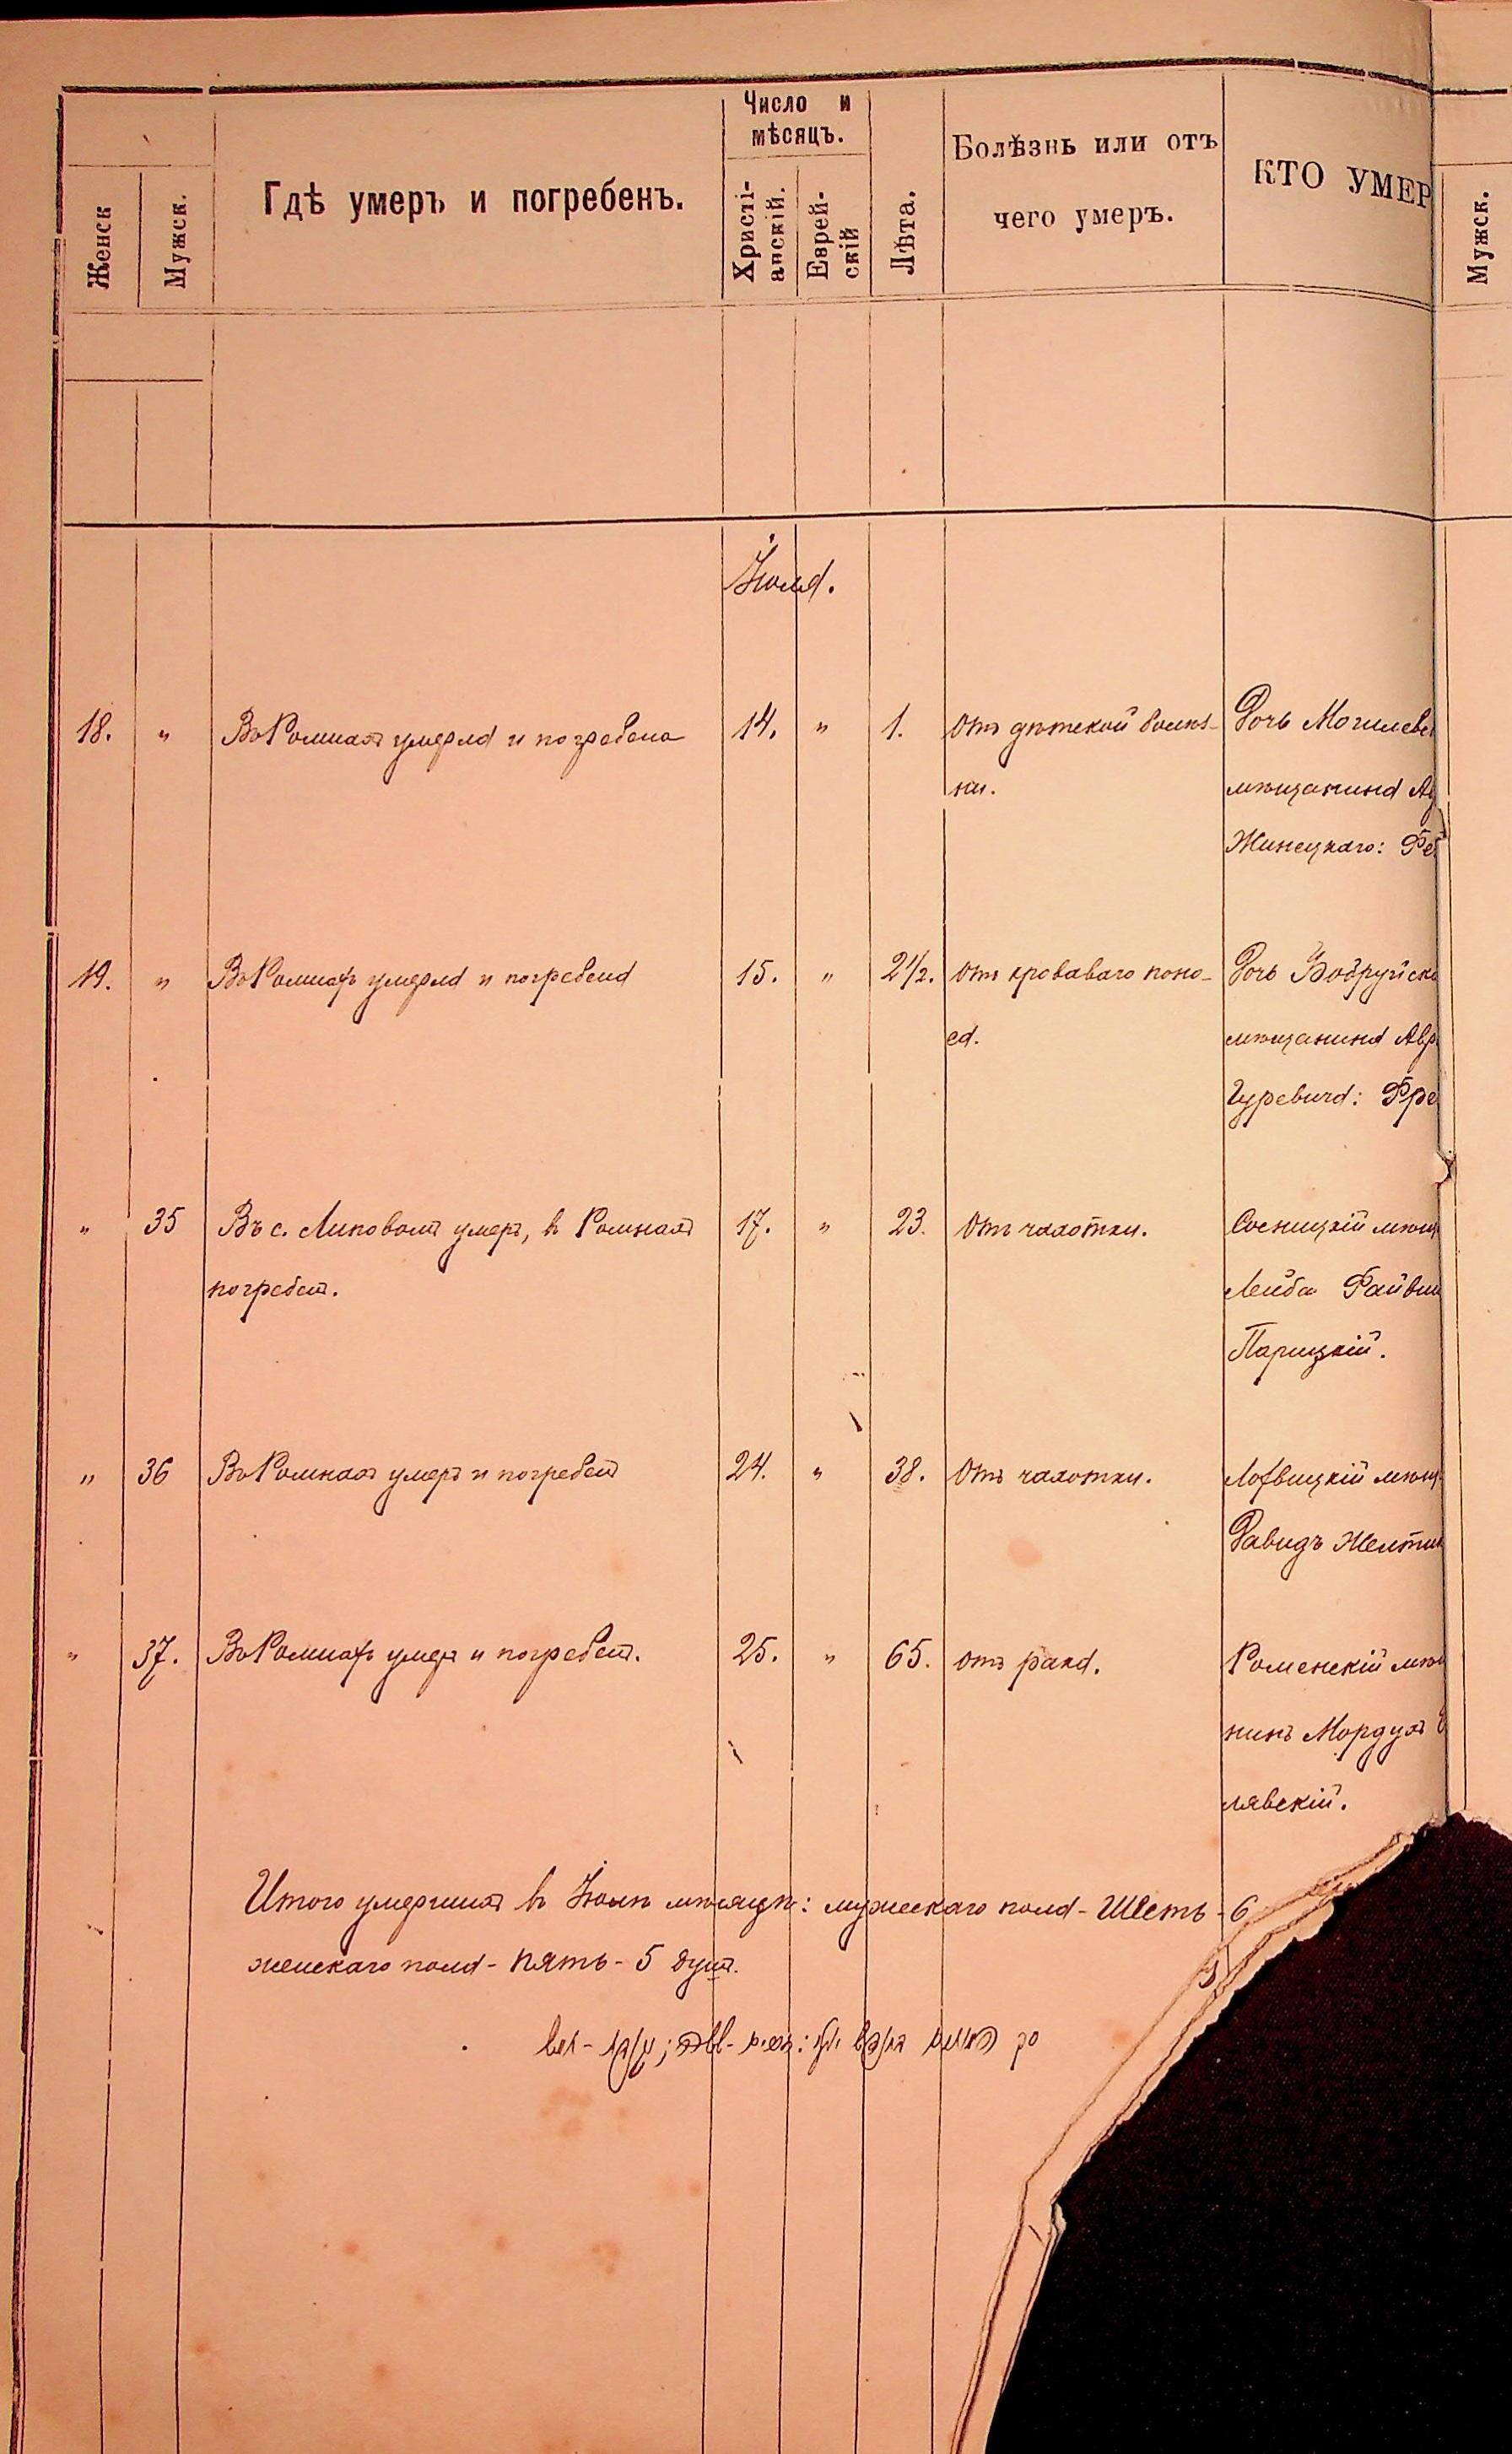 Женск
Мужск.
Гдѣ умеръ и погребенъ.
Число и
мѣсяцъ.
Христі-
анскій.
Еврей-
скій
Лѣта.
Болѣзнь или отъ
чего умеръ.
КТО УМЕР
Мужск.
Іюля.
18. " Въ Ромнахъ умерла и погребена 14. " 1. Отъ дѣтской болѣз- Дочь Могилевс
ни. мѣщанина
Жинецкаго:
19. " Въ Ромнахъ умерла и погребена 15. " 2½. Отъ кроваваго поно- Дочь Бобруйска
са. мѣщанина Авр
Гуревича: Фре
" 35 Въ с. Липовомъ умеръ, въ Ромнахъ 17. " 23. Отъ чахотки. Сосницкій мѣщ
погребенъ. Лейба Файви
Парицкій.
" 36 Въ Ромнахъ умеръ и погребенъ 24. " 38. Отъ чахотки. Лохвицкій мѣщ
Давидъ Желтин
" 37. Въ Ромнахъ умеръ и погребенъ. 25. " 65. Отъ рака. Роменскій мѣщ
нинъ Мордухъ
лявскій.
Итого умершихъ въ Іюлѣ мѣсяцѣ: мужескаго пола - Шесть - 6
женскаго пола - пять - 5 душъ.